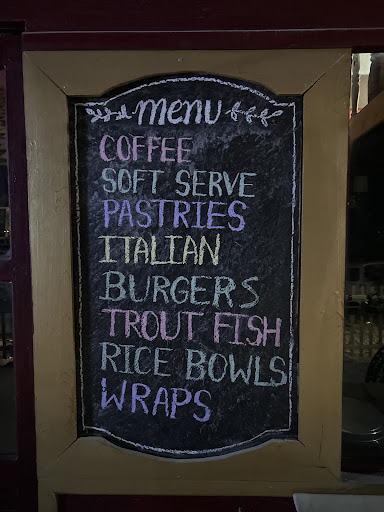 menu
COFFEE
SOFT SERVE
PASTRIES
ITALIAN
BURGERS
TROUT FISH
RICE BOWLS
WRAPS